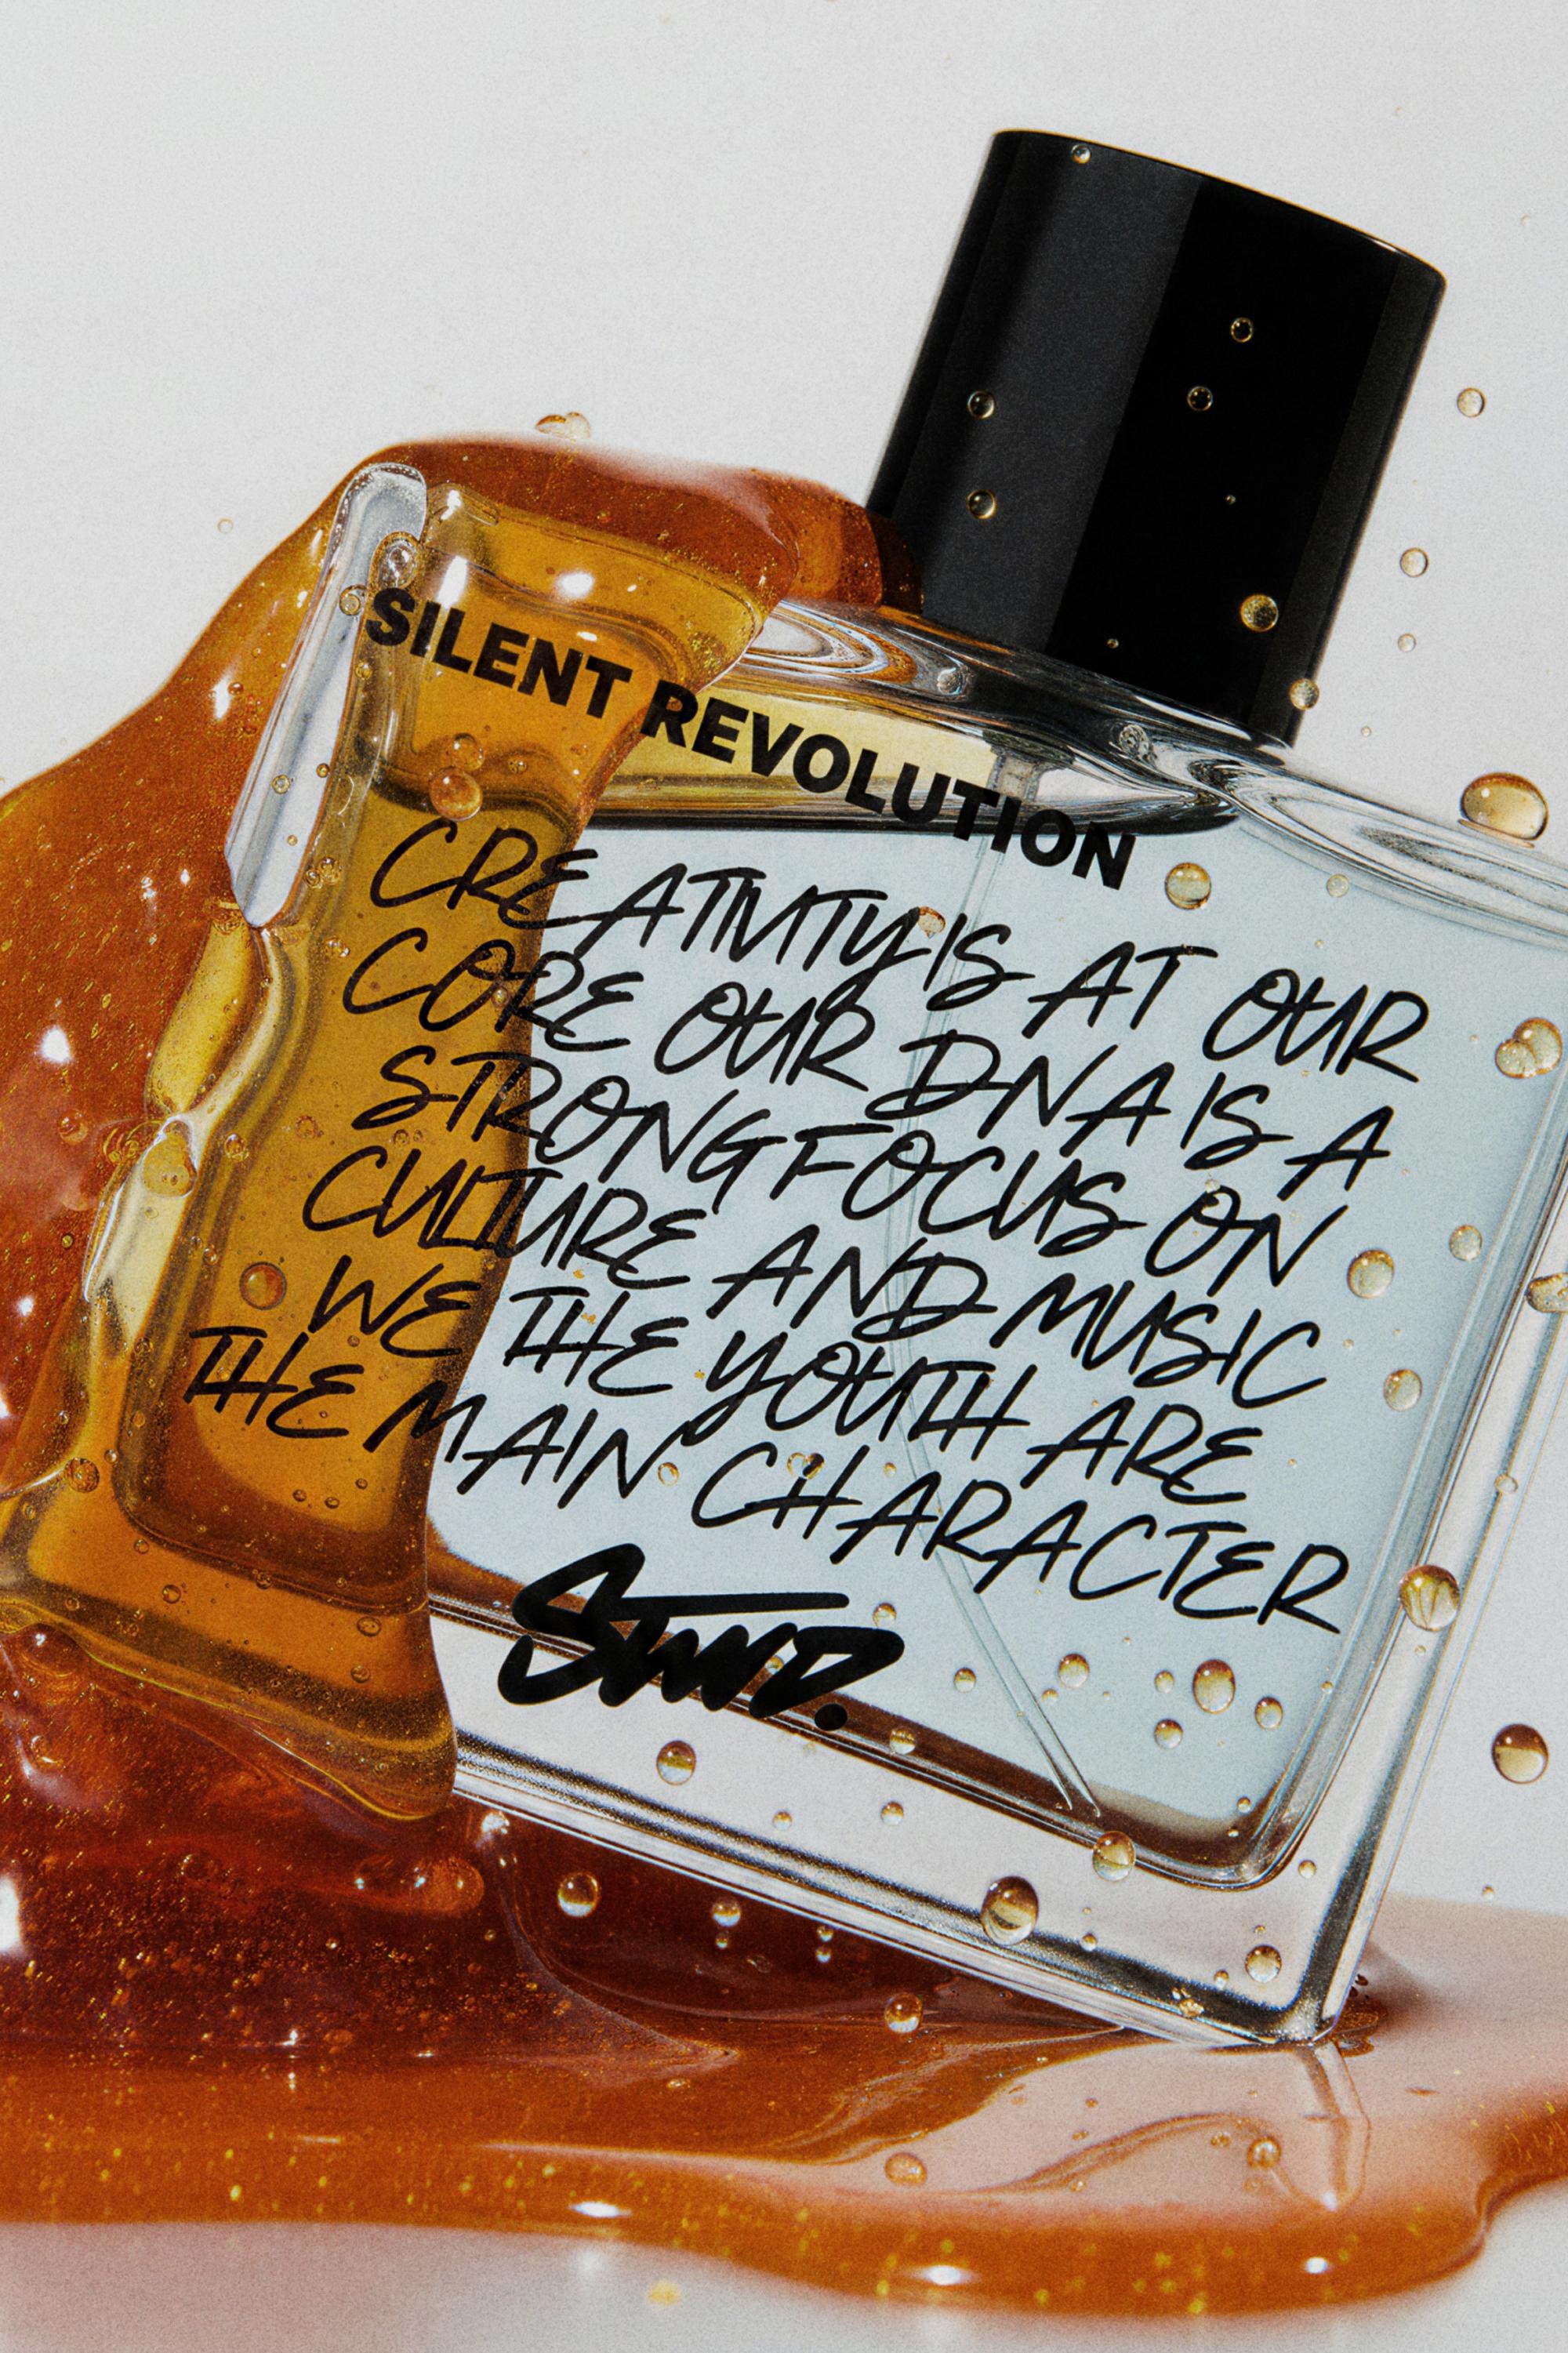 SILENT REVOLUTION
CREATIVITY IS AT OUR
CORE OUR DNA IS A
STRONG FOCUS ON
CULTURE AND MUSIC
WE THE YOUTH ARE
THE MAIN CHARACTER